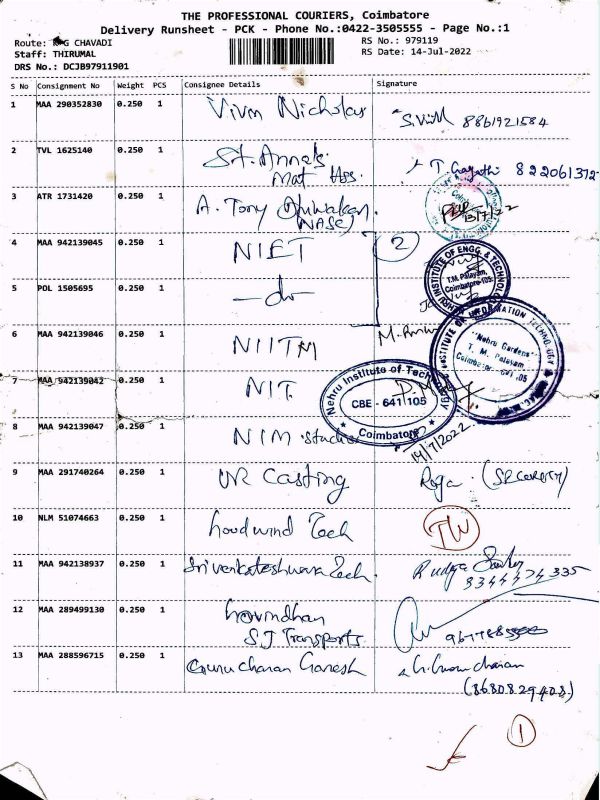 THE PROFESSIONAL COURIERS, Coimbatore
Delivery Runsheet - PCK - Phone No.:0422-3505555 - Page No.:1
Route: R G CHAVADI
RS No.: 979119
Staff: THIRUMAL
RS Date: 14-Jul-2022
DRS No.: DCJB97911901
S No Consignment No Weight PCS Consignee Details Signature
1 MAA 290352830 0.250 1 Nicholas 8861921584
2 TVL 1625140 0.250 1 St. Anne's
Mat Hss. 822061372
3 ATR 1731420 0.250 1 A. Tony
(NASC) 13/7/22
4 MAA 942139045 0.250 1 NIET 2
INSTITUTE OF ENGG. & TECHNOLOGY
T.M. Palayam,
Coimbatore-105
5 POL 1505695 0.250 1 -do-
6 MAA 942139046 0.250 1 NIITM
INSTITUTE OF INFORMATION TECHNOLOGY
"Nehru Gardens"
T. M. Palayam,
Coimbatore - 641 105
7 MAA 942139042 0.250 1 NIT
Nehru Institute of Technology
CBE - 641 105
Coimbatore
8 MAA 942139047 0.250 1 NIM studies
14/7/2022
9 MAA 291740264 0.250 1 UR Casting Roja (SECURITY)
10 NLM 51074663 0.250 1 Tech TW
11 MAA 942138937 0.250 1 Srivenkateshwara Tech. Rudra
9344474335
12 MAA 289499130 0.250 1 Govindhan
SJ Transports
13 MAA 288596715 0.250 1 Guru charan Ganesh G. Gurucharan
(8680829408)
1